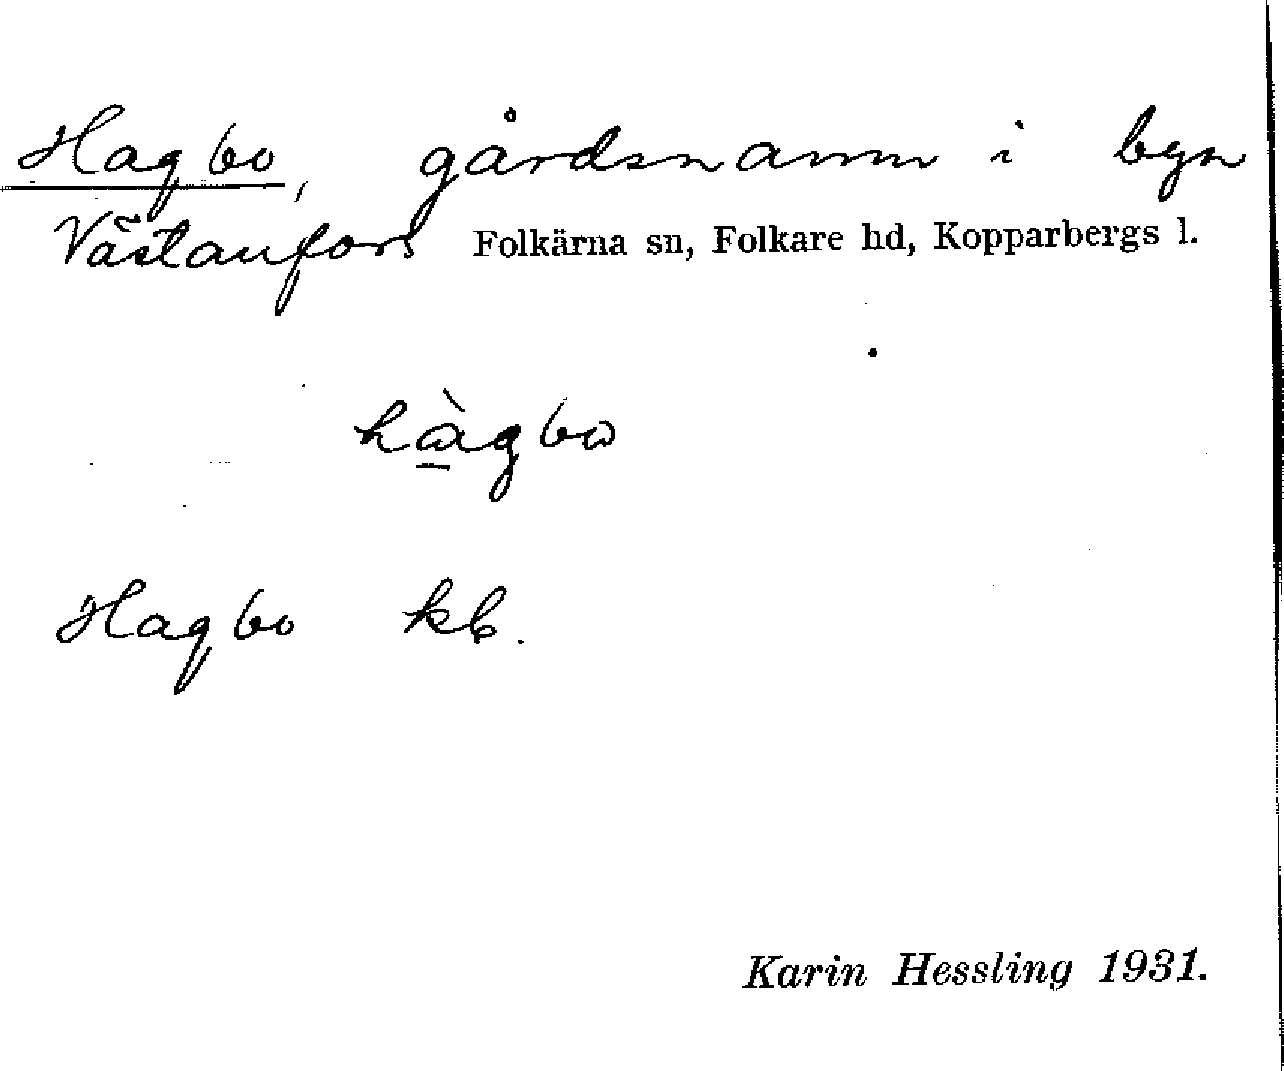 Hagbo, gårdsnamn i byn
Västanfors Folkärna sn, Folkare hd, Kopparbergs l.
hàgbω
Hagbo kb.
Karin Hessling 1931.